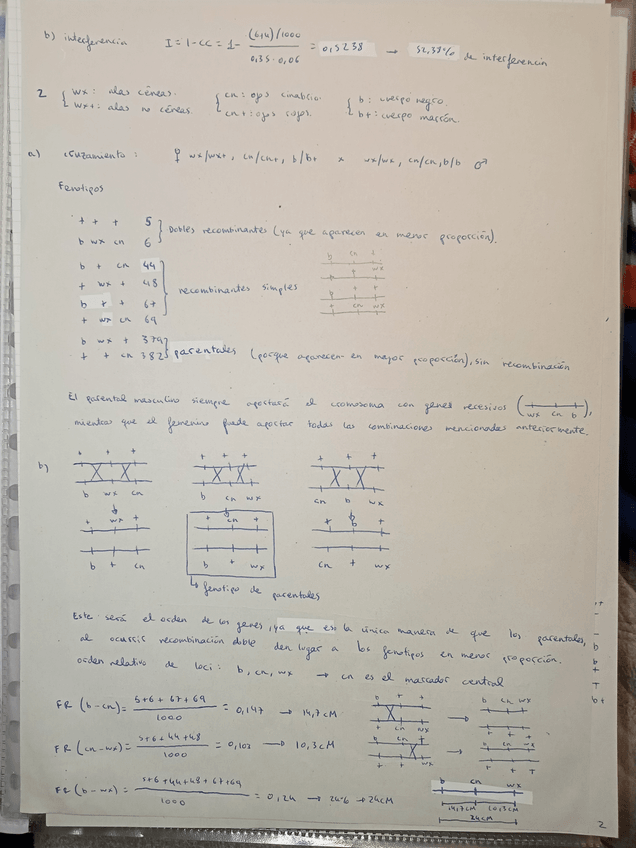 b) interferencia I = 1 - CC = 1 - (6+4)/1000 / 0,35 · 0,06 = 0,5238 → 52,38% de interferencia
2 { wx: alas céreas. { cn: ojos cinabrio. { b: cuerpo negro.
wx+: alas no céreas. cn+: ojos rojos. b+: cuerpo marrón.
a) cruzamiento: ♀ wx/wx+, cn/cn+, b/b+ x wx/wx, cn/cn, b/b ♂
Fenotipos
+ + + 5 } Dobles recombinantes (ya que aparecen en menor proporción).
b wx cn 6
b + cn 44
+ wx + 48 } recombinantes simples
b + + 67
+ wx cn 69
b wx + 379
+ + cn 382 } parentales (porque aparecen en mayor proporción), sin recombinación
El parental masculino siempre aportará el cromosoma con genes recesivos (wx cn b),
mientras que el femenino puede aportar todas las combinaciones mencionadas anteriormente.
b) + + + + + + + + +
b wx cn b cn wx cn b wx
+ wx + + cn + + b +
b + cn b + wx cn + wx
↳ fenotipo de parentales
Este será el orden de los genes, ya que es la única manera de que los parentales,
al ocurrir recombinación doble den lugar a los fenotipos en menor proporción.
orden relativo de loci: b, cn, wx → cn es el marcador central
FR (b-cn) = 5+6+67+69 / 1000 = 0,147 → 14,7 cM
FR (cn-wx) = 5+6+44+48 / 1000 = 0,103 → 10,3 cM
FR (b-wx) = 5+6+44+48+67+69 / 1000 = 0,24 → 24% → 24 cM
b cn wx
14,7 cM 10,3 cM
24 cM
2